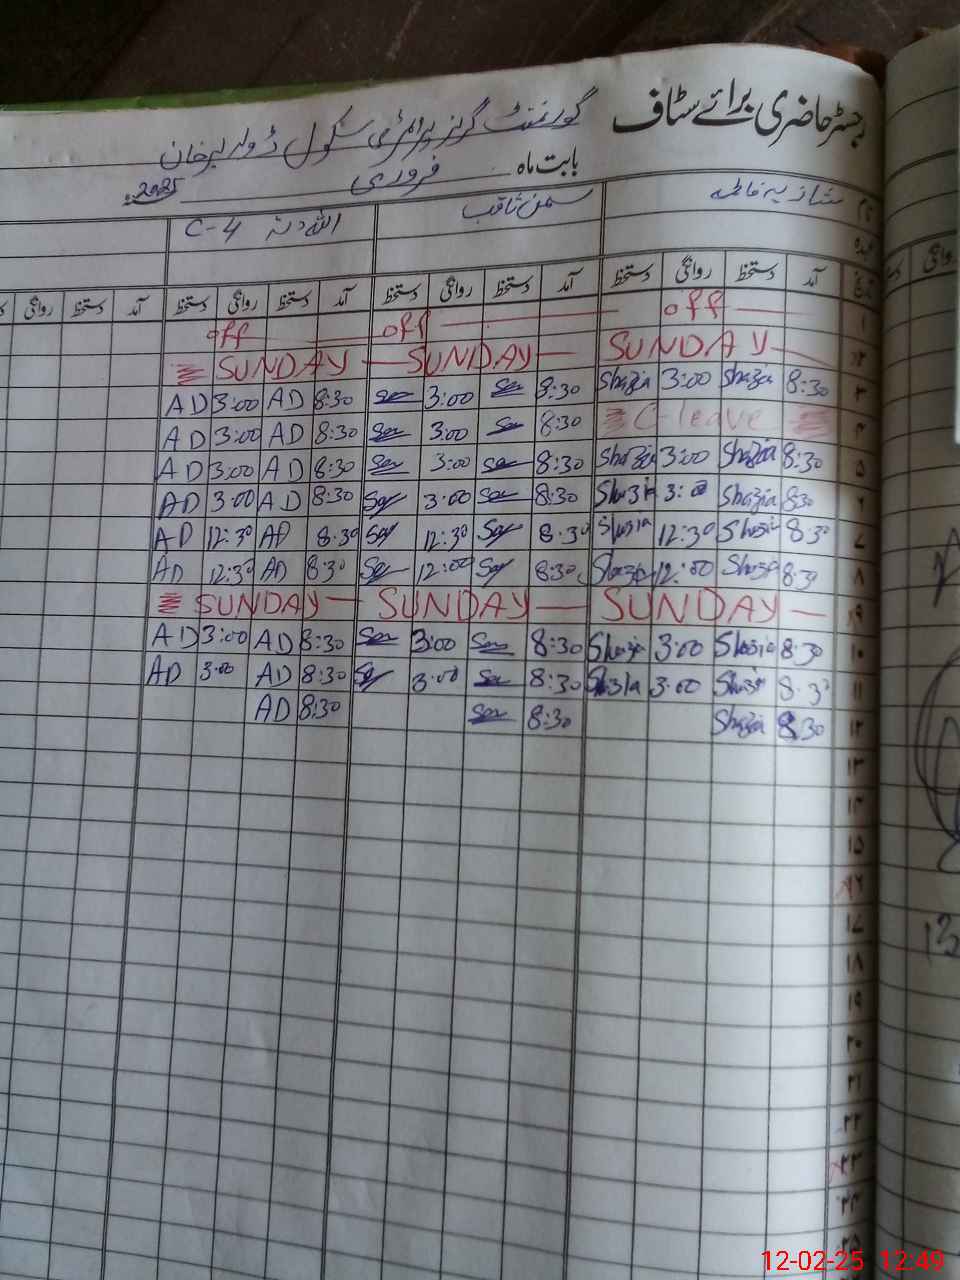 رجسٹر حاضری برائے سٹاف
گورنمنٹ گرلز پرائمری سکول
بابت ماہ فروری 2025
نام شازیہ فاطمہ سمن ثاقب اللہ دتہ C-4
عہدہ
تاریخ آمد دستخط روانگی دستخط آمد دستخط روانگی دستخط آمد دستخط روانگی دستخط آمد دستخط روانگی
۱ off off off
۲ SUNDAY SUNDAY SUNDAY
۳ 8:30 Shazia 3:00 Shazia 8:30 3:00 8:30 AD 3:00 AD
۴ C-leave 8:30 3:00 8:30 AD 3:00 AD
۵ 8:30 Shazia 3:00 Shazia 8:30 3:00 8:30 AD 3:00 AD
۶ 8:30 Shazia 3:00 Shazia 8:30 3:00 8:30 AD 3:00 AD
۷ 8:30 Shazia 12:30 Shazia 8:30 12:30 8:30 AD 12:30 AD
۸ 8:30 Shazia 12:00 Shazia 8:30 12:00 8:30 AD 12:30 AD
۹ SUNDAY SUNDAY SUNDAY
۱۰ 8:30 Shazia 3:00 Shazia 8:30 3:00 8:30 AD 3:00 AD
۱۱ 8:30 Shazia 3:00 Shazia 8:30 3:00 8:30 AD 3:00 AD
۱۲ 8:30 Shazia 8:30 8:30 AD
۱۳
۱۴
۱۵
۱۶
۱۷
۱۸
۱۹
۲۰
۲۱
۲۲
۲۳
۲۴
۲۵
12-02-25 12:49